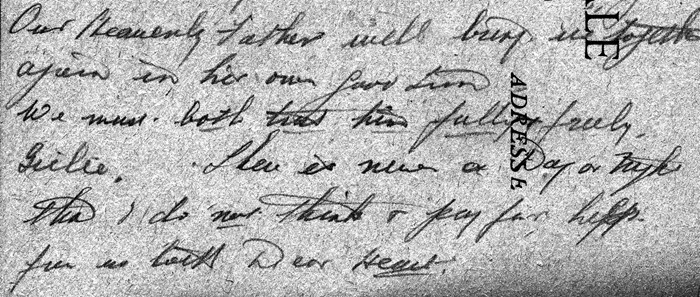 Our Heavenly Father will bring us together
again in his own good time
We must both trust him fully & freely.
Girlie. There is never a Day or Night
That I do not think & pray for help
for us both Dear Heart.
ALE
ADRESSE